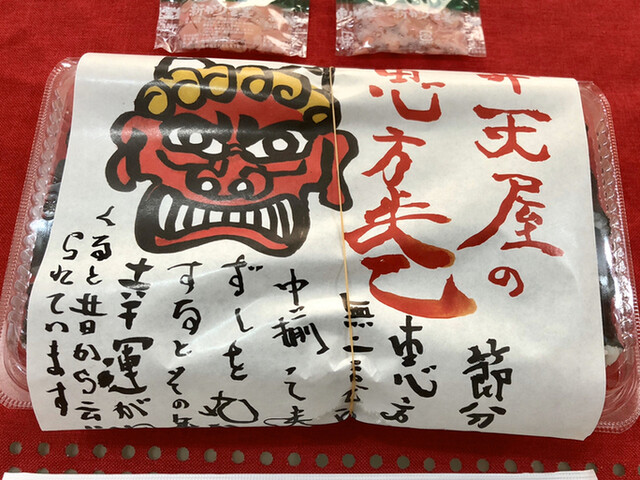 天屋の
恵方巻
節分
恵方
無言
って巻
ずしを丸
するとその年
幸運が
くると昔から云
られています